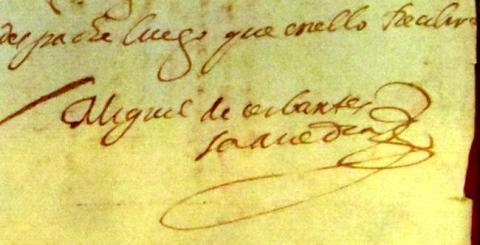 despache luego que en ello
Miguel de cerbantes
saauedra